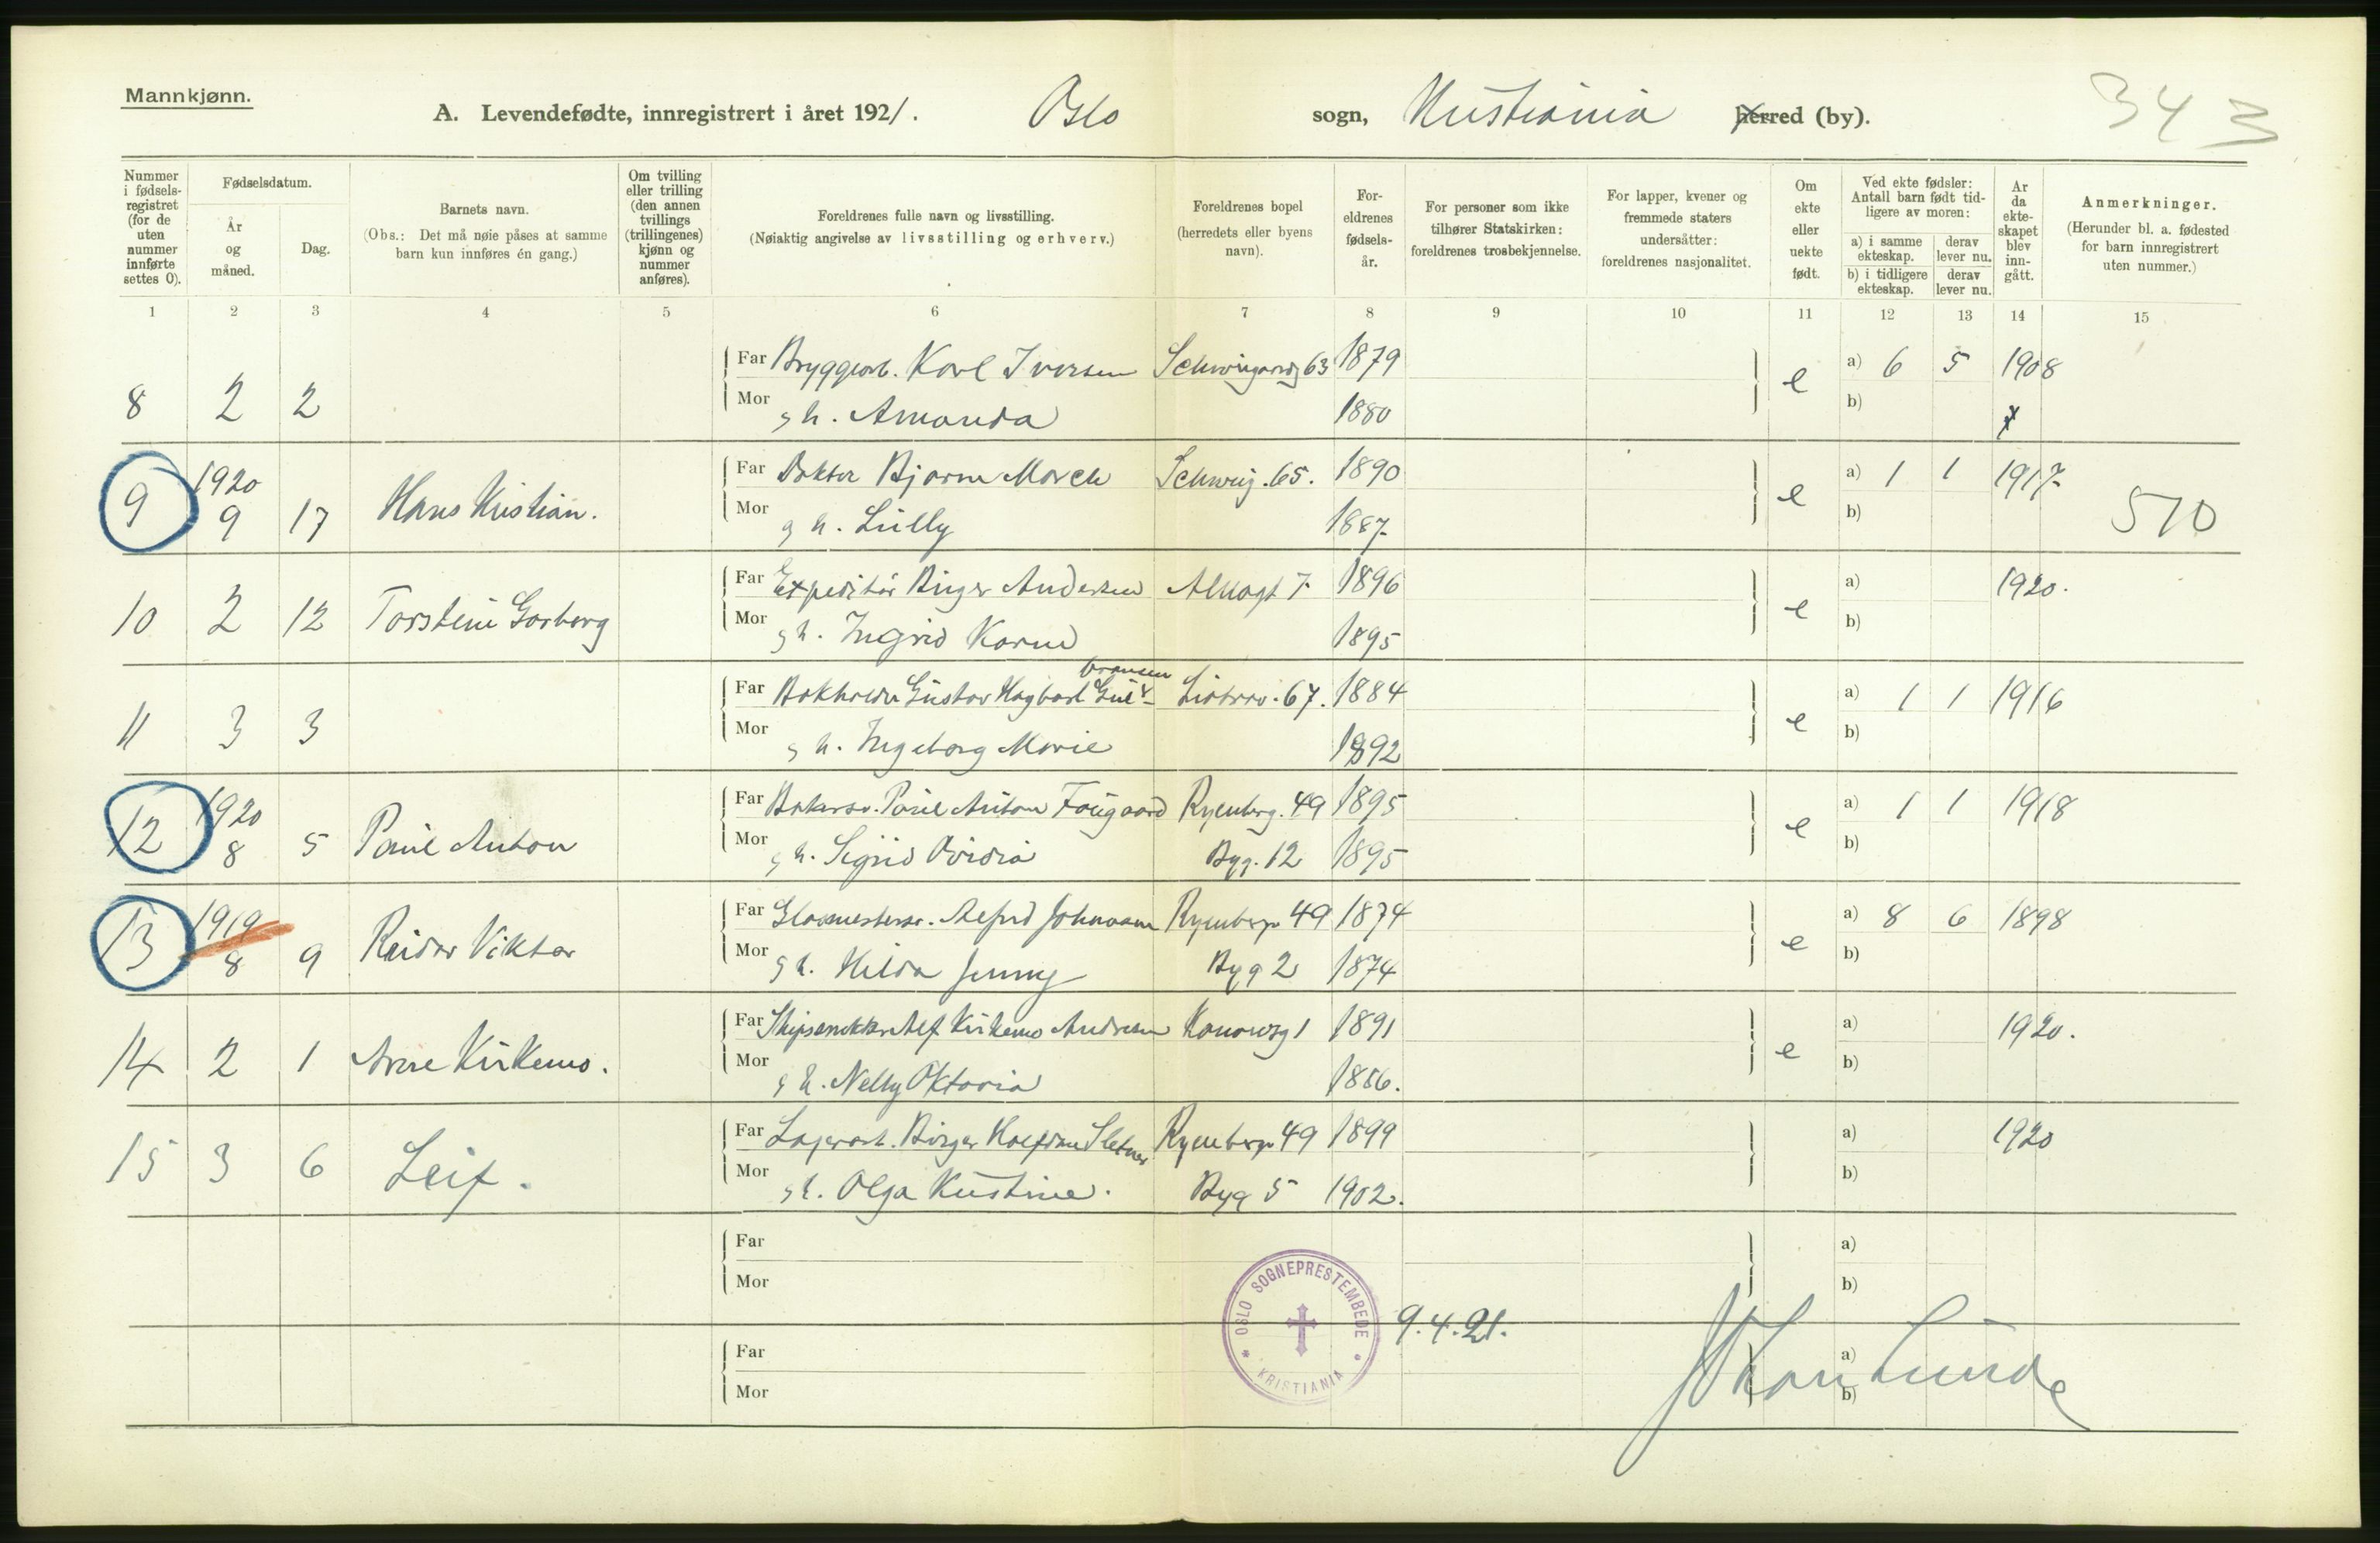 Mannkjønn.
A. Levendefødte, innregistrert i året 1921. Oslo sogn, Kristiania herred (by). 343
Nummer i fødselsregistret (for de uten nummer innførte settes 0).
Fødselsdatum.
År og måned.
Dag.
Barnets navn.
(Obs.: Det må nøie påses at samme barn kun innføres én gang.)
Om tvilling eller trilling (den annen tvillings (trillingenes) kjønn og nummer anføres).
Foreldrenes fulle navn og livsstilling.
(Nøiaktig angivelse av livsstilling og erhverv.)
Foreldrenes bopel (herredets eller byens navn).
Foreldrenes fødselsår.
For personer som ikke tilhører Statskirken: foreldrenes trosbekjennelse.
For lapper, kvener og fremmede staters undersåtter: foreldrenes nasjonalitet.
Om ekte eller uekte født.
Ved ekte fødsler: Antall barn født tidligere av moren:
a) i samme ekteskap. derav lever nu.
b) i tidligere ekteskap. derav lever nu.
År da ekteskapet blev inngått.
Anmerkninger.
(Herunder bl. a. fødested for barn innregistrert uten nummer.)
1 2 3 4 5 6 7 8 9 10 11 12 13 14 15
Far Bryggearb. Karl Iversen Schweigaardsg 63 1879 a) 6 5 1908
8 2 2 e
Mor g h. Amanda 1880 b)
Far Doktor Bjarne Morch Schweig. 65. 1890 a) 1 1 1917
9 1920 9 17 Hans Kristian. e 510
Mor g h. Lully 1887 b)
Far Expeditør Birger Andersen 7 1896 a) 1920.
10 2 12 Torstein Garborg e
Mor g h. Ingrid Karne 1895 b)
Far Bokholder Gustav Hagbart Gulbransen 67. 1884 a) 1 1 1916
11 3 3 e
Mor g h. Ingeborg Marie 1892 b)
Far Bakersv. Paul Anton Fougaard Ryenberg. 49 1895 a) 1 1 1918
12 1920 8 5 Paul Anton e
Mor g h. Sigrid Ovidia Byg. 12 1895 b)
Far Glasmestersv. Alfred Johnsen Ryenberg 49 1874 a) 8 6 1898
13 1919 8 9 Reidar Viktor e
Mor g h. Hilda Jenny Byg 2 1874 b)
Far Alf Kirkemo Andresen Konowsg 1 1891 a) 1920.
14 2 1 Arne Kirkemo. e
Mor g h. Nelly Oktavia 1886. b)
Far Lagerarb. Birger Halfdan Sletner Ryenberg 49 1899 a) 1920
15 3 6 Leif.
Mor g h. Olga Kristine. Byg 5 1902. b)
Far a)
Mor b)
OSLO SOGNEPRESTEMBEDE * KRISTIANIA *
9.4.21.
Far a)
Mor b)
Lunde